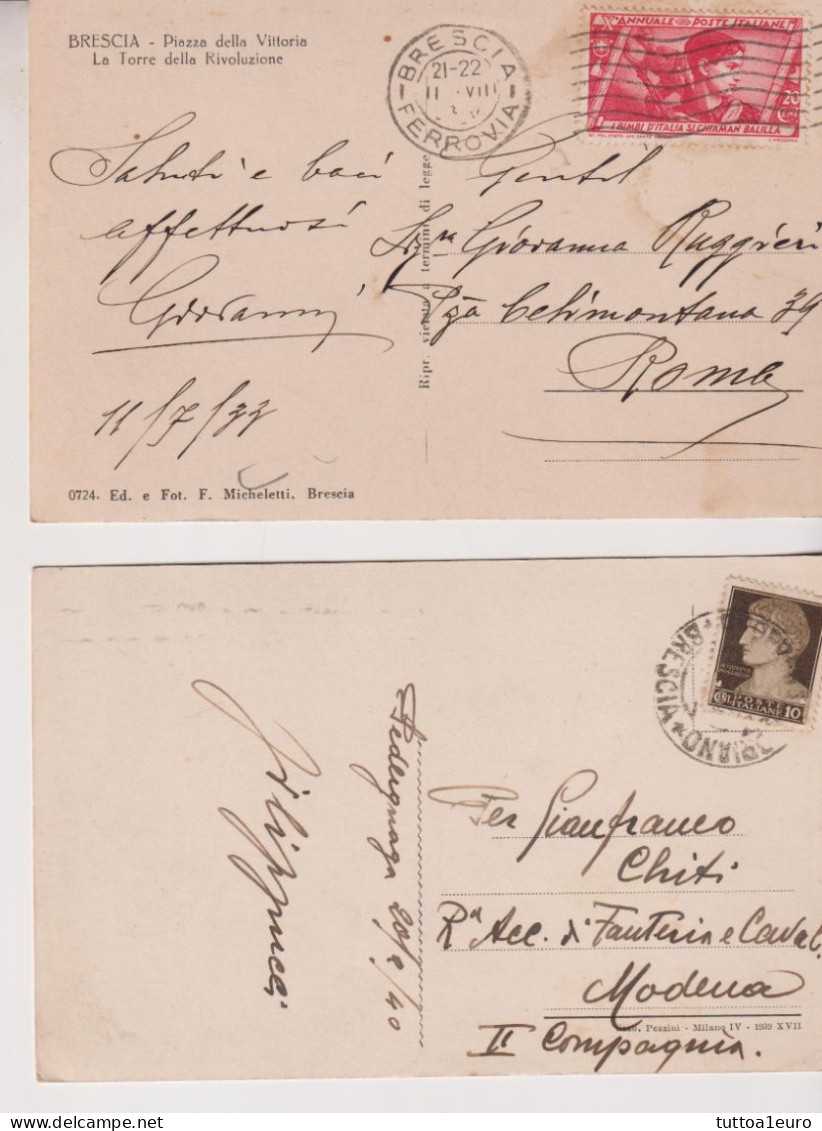 BRESCIA - Piazza della Vittoria
La Torre della Rivoluzione
BRESCIA
21-22
FERROVIA
X° ANNUALE POSTE ITALIANE
20
I BIMBI D'ITALIA SI CHIAMAN BALILLA
Saluti e baci
affettuosi
Giovanni
11/7/33
Ripr. vietata a termini di legge
Gentil
Sig.ra Giovanna Ruggieri
Pza Celimontana 39
Roma
0724. Ed. e Fot. F. Micheletti, Brescia
BRESCIA
POSTE
ITALIANE 10
Pedergnaga
Per Gianfranco
Chiti
Ra Acc. di Fanteria e Caval.
Modena
Pezzini - Milano IV - 1939 XVII
II Compagnia.
tuttoa1euro